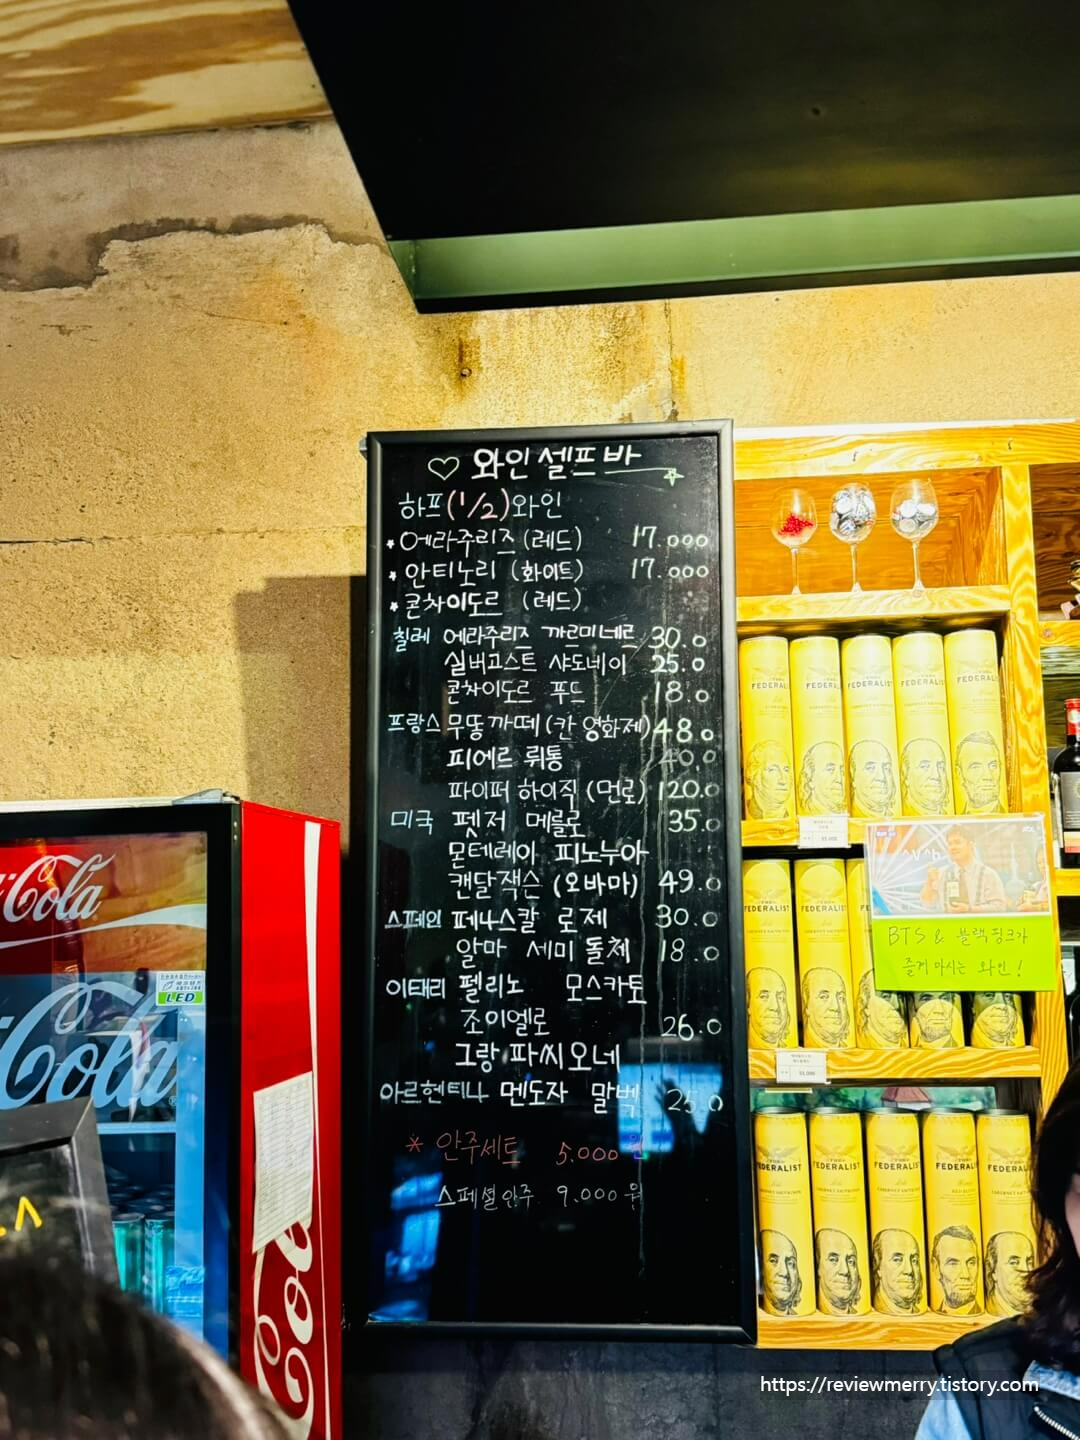 ♡ 와인 셀프 바
하프(1/2)와인
* 에라주리즈 (레드) 17.000
* 안티노리 (화이트) 17.000
* 콘차이도르 (레드)
칠레 에라주리즈 까르미네르 30.0
실버고스트 샤도네이 25.0
콘차이도르 푸드 18.0
프랑스 무똥까떼(칸 영화제) 48.0
피에르 뤼통 40,0
파이퍼 하이직 (먼로) 120.0
미국 펫저 메를로 35.0
몬테레이 피노누아
캔달잭슨 (오바마) 49.0
스페인 페나스칼 로제 30.0
알마 세미 돌체 18.0
이태리 펠리노 모스카토
조이엘로 26.0
그랑파씨오네
아르헨티나 멘도자 말벡 25.0
* 안주세트 5.000 원
스페셜안주 9.000 원
FEDERALIST FEDERALIST FEDERALIST FEDERALIST FEDERALIST
BTS & 블랙핑크가
즐겨 마시는 와인!
FEDERALIST FEDERALIST
THE FEDERALIST CABERNET SAUVIGNON
Cola
LED
Cola
Co
https://reviewmerry.tistory.com